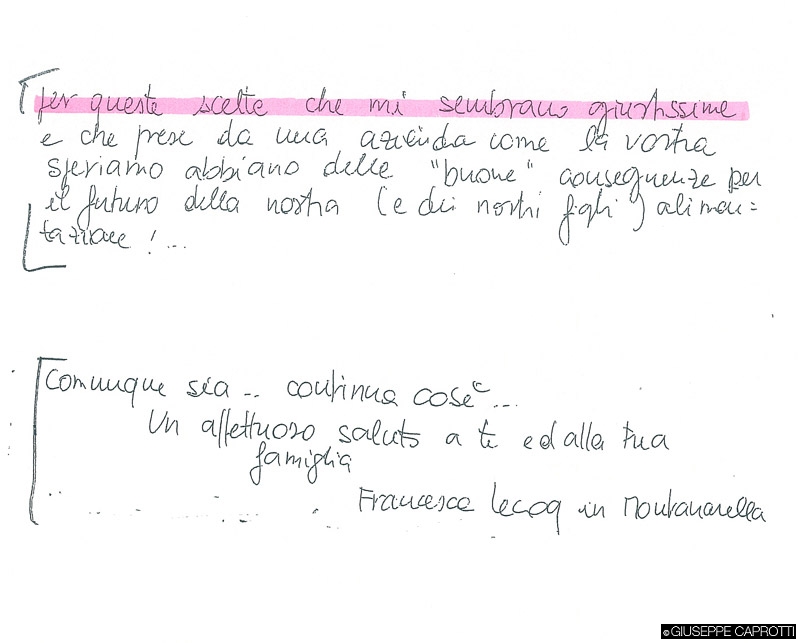 per queste scelte che mi sembrano giustissime
e che prese da una azienda come la vostra
speriamo abbiano delle "buone" conseguenze per
il futuro della nostra (e dei nostri figli) alimen=
tazione !...
Comunque sia .. continua così...
Un affettuoso saluto a te ed alla tua
famiglia
Francesca Lecoq in Montanarella
©GIUSEPPE CAPROTTI